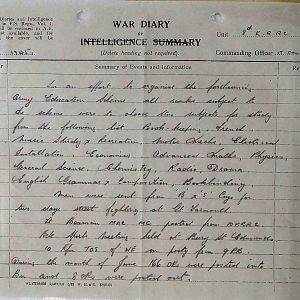 Diaries and Intelligence
in F.S. Regs., Vol. I
WAR DIARY
or
INTELLIGENCE SUMMARY
(Delete heading not required).
Unit
Commanding Officer
Summary of Events and Information
In an effort to organise the forthcoming
Army Education Scheme all ranks subject to
the scheme were to choose two subjects for study
from the following list Book-Keeping, French,
Music Study & Recreation, Motor Mechs, Electrical
Installation, Economics, Advanced Maths, Physics,
General Science, Chemistry, Radio, Drama
English Grammar & Composition, Bookbinding
Men were sent from B & S Coys for
two days street fighting at Gt Yarmouth.
posted from
meeting held at Bury St Edmunds
10 Men TOS of on posting from
During the month of June 166 ORs were posted into
Bn and 2 ORs were posted out.